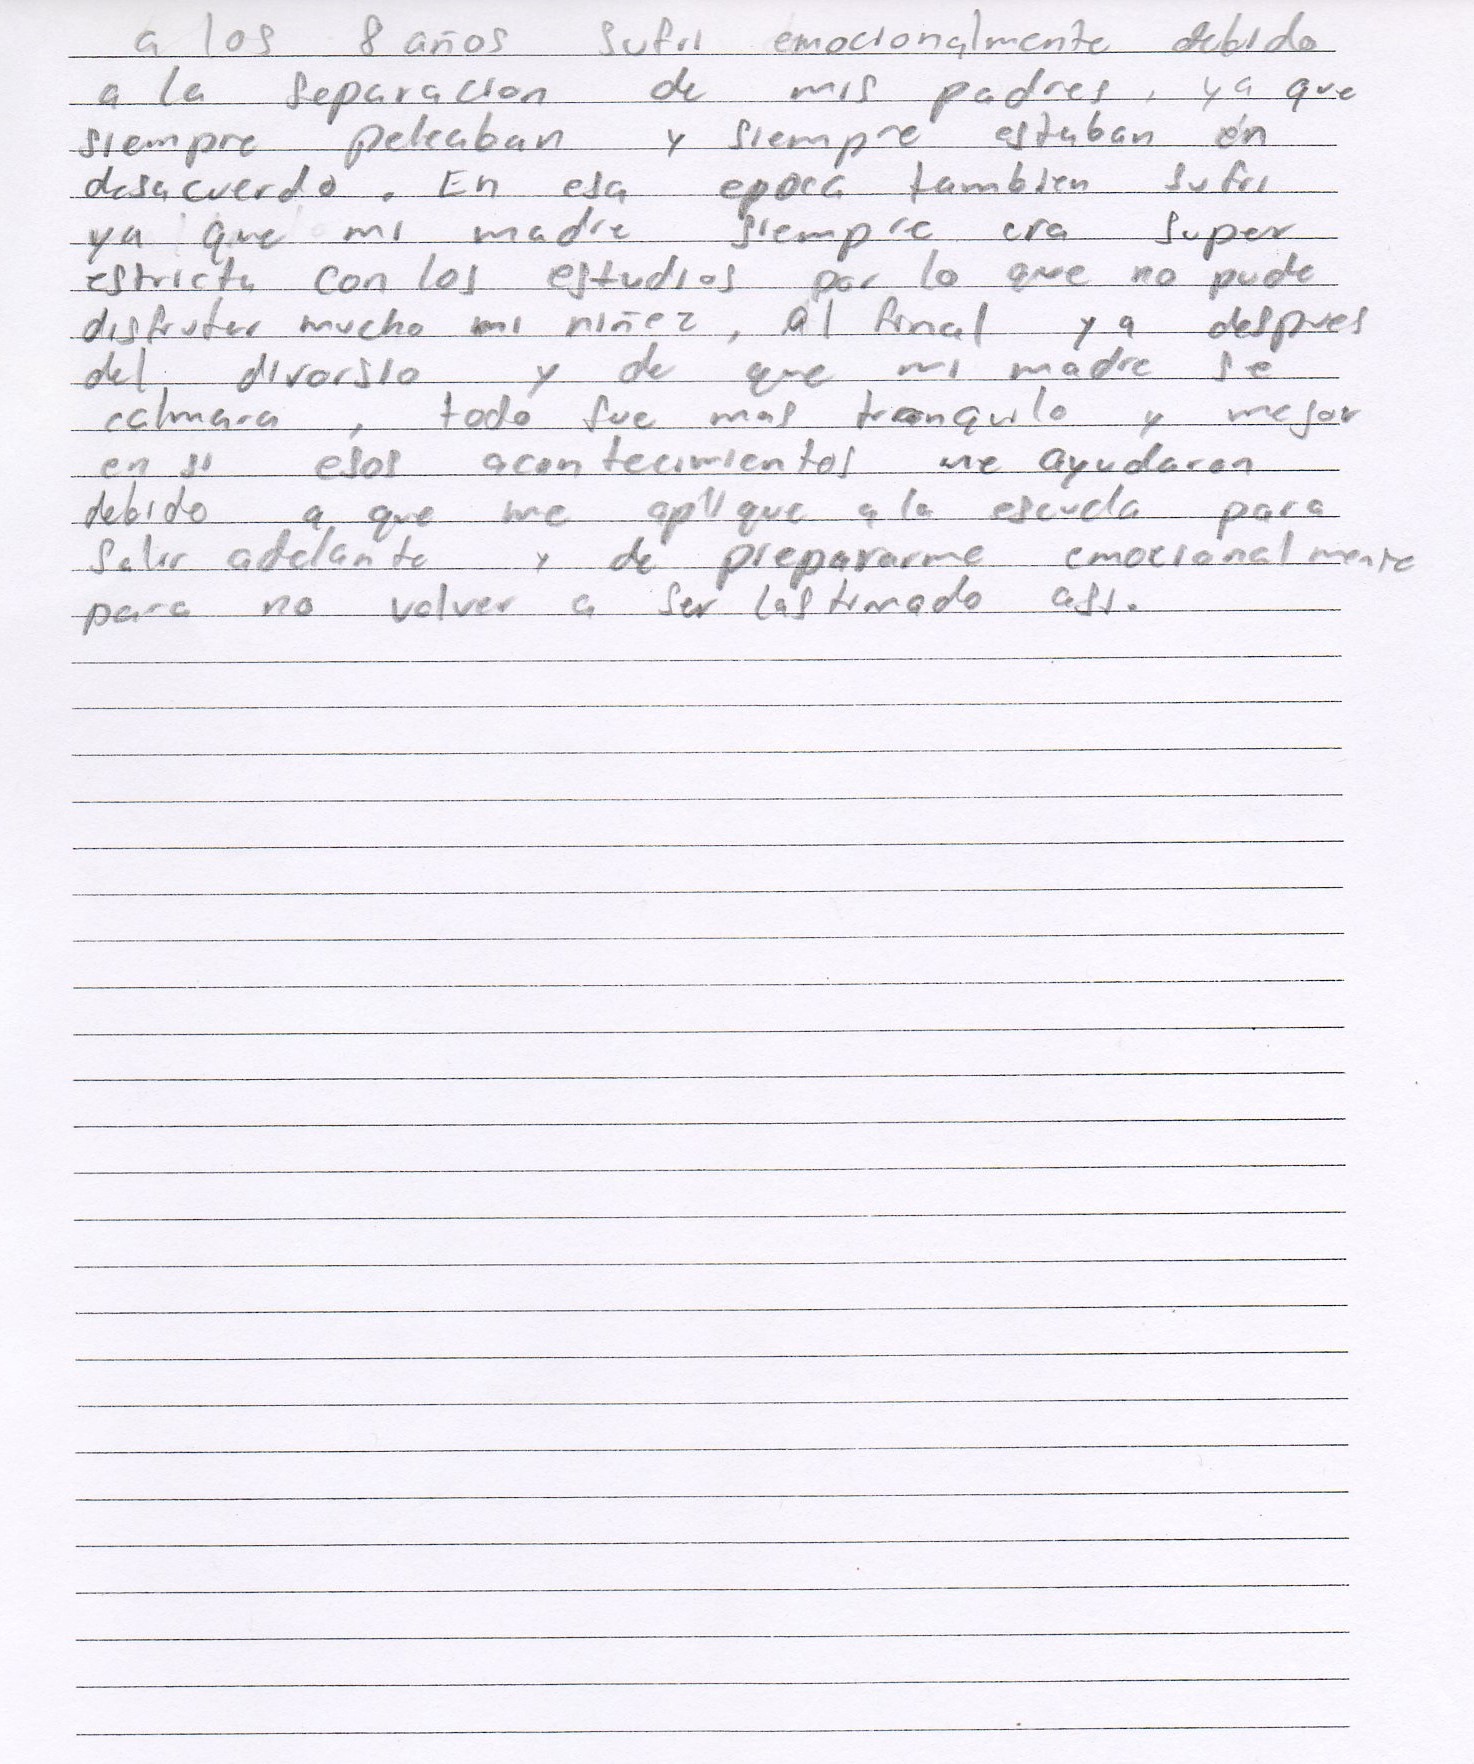 a los 8 años sufri emocionalmente debido
a la separacion de mis padres, ya que
siempre peleaban y siempre estaban en
desacuerdo. En esa epoca tambien sufri
ya que mi madre siempre era super
estricta con los estudios por lo que no pude
disfrutar mucho mi niñez, al final ya despues
del divorsio y de que mi madre se
calmara, todo fue mas tranquilo y mejor
en si esos acontecimientos me ayudaron
debido a que me aplique a la escuela para
salir adelante y de prepararme emocionalmente
para no volver a ser lastimado asi.